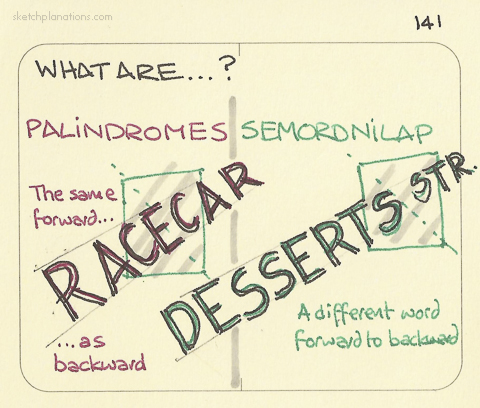 sketchplanations.com
141
WHAT ARE...?
PALINDROMES
SEMORDNILAP
The same
forward...
RACECAR
...as
backward
DESSERTS STR.
A different word
forward to backward